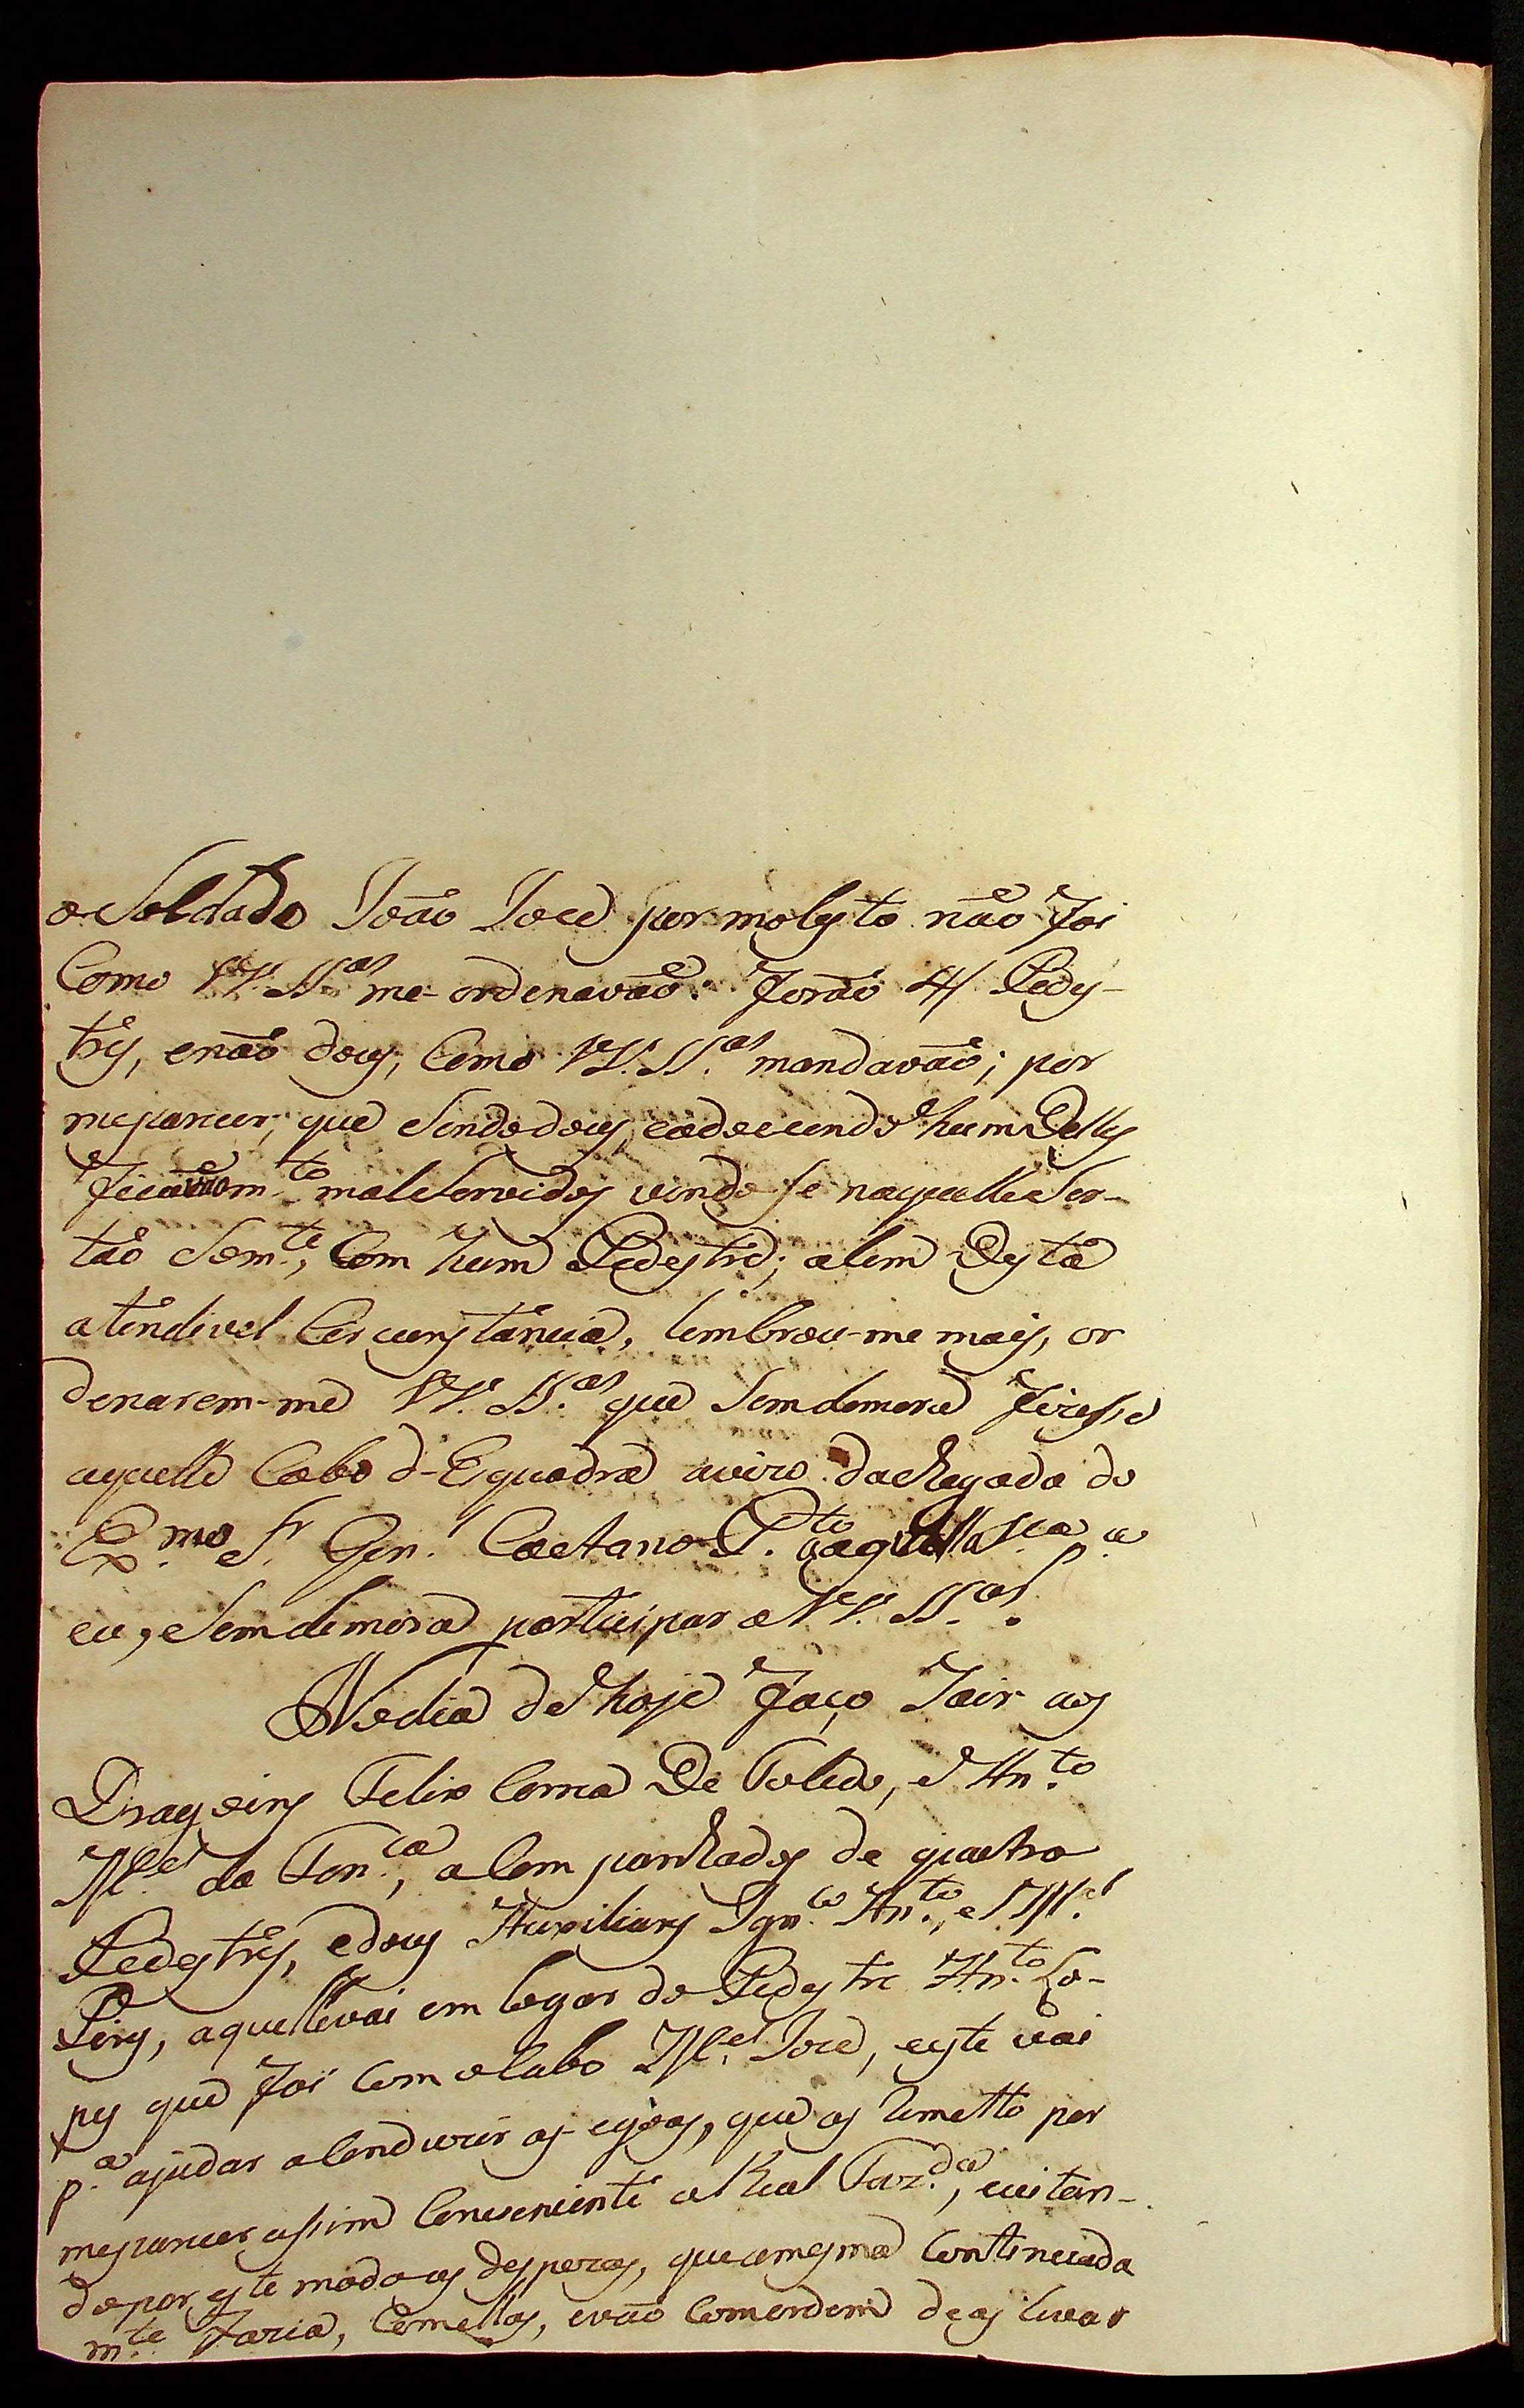 o Soldado João Joze por molesto não foi
Como VV. SS.as me-ordenavão. Forão 4 Pedes-
tres, enão dous, Como VV. SS.as mandavão; por
meparecer, que Sendo dous, eadoecendo hum Delles
ficavão m.to malServidos vendo se naquelle Ser-
tão Som.te, Com hum Pedestre; alem Desta
atendivel Circunstancia, lembrou-me mais, or
denarem-me VV. SS.as que Sem demora fizesse
aquelle Cabo d-Esquadra avizo dachegada do
Ex.mo Sr. Gen.l Caetano P.to aaquella p.a
eu, Sem demora participar a VV. SS.as.
Nodia de hoje faço Sair aos
Dragoens Felix Correa De Toledo, e An.to
M.el da Fon.ca, acompanhados de quatro
Pedestres, edous Auxiliares Ign.co An.to, e M.el
Pires, aquelle vai em logar do Pedestre An.to Lo-
pes que foi Com oCabo M.el Joze, eeste vai
p.a ajudar aConduzir as egoas, que as Remetto por
meparecer assim Conveniente a Real Faz.da, evitan-
do por este modo as despezas, que amesma Continuada
m.te Faria, Comellas, evão Comordem de as levar